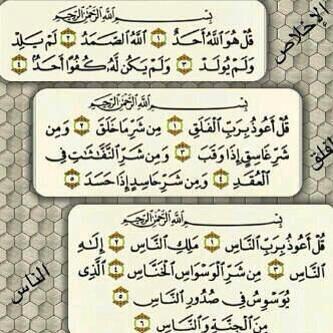 الإخلاص
بِسْمِ ٱللَّهِ ٱلرَّحْمَٰنِ ٱلرَّحِيمِ
قُلْ هُوَ ٱللَّهُ أَحَدٌ ١ ٱللَّهُ ٱلصَّمَدُ ٢ لَمْ يَلِدْ
وَلَمْ يُولَدْ ٣ وَلَمْ يَكُن لَّهُۥ كُفُوًا أَحَدٌۢ ٤
بِسْمِ ٱللَّهِ ٱلرَّحْمَٰنِ ٱلرَّحِيمِ
قُلْ أَعُوذُ بِرَبِّ ٱلْفَلَقِ ١ مِن شَرِّ مَا خَلَقَ ٢ وَمِن
شَرِّ غَاسِقٍ إِذَا وَقَبَ ٣ وَمِن شَرِّ ٱلنَّفَّٰثَٰتِ فِى
ٱلْعُقَدِ ٤ وَمِن شَرِّ حَاسِدٍ إِذَا حَسَدَ ٥
الناس
بِسْمِ ٱللَّهِ ٱلرَّحْمَٰنِ ٱلرَّحِيمِ
قُلْ أَعُوذُ بِرَبِّ ٱلنَّاسِ ١ مَلِكِ ٱلنَّاسِ ٢ إِلَٰهِ
ٱلنَّاسِ ٣ مِن شَرِّ ٱلْوَسْوَاسِ ٱلْخَنَّاسِ ٤ ٱلَّذِى
يُوَسْوِسُ فِى صُدُورِ ٱلنَّاسِ ٥
مِنَ ٱلْجِنَّةِ وَٱلنَّاسِ ٦